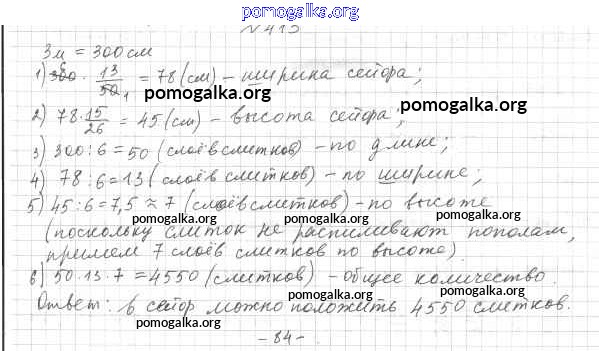 pomogalka.org
№ 413
3м = 300 см
1) 300 · 13/50 = 78 (см) – ширина сейфа;
pomogalka.org pomogalka.org
2) 78 · 15/26 = 45 (см) – высота сейфа;
pomogalka.org
3) 300 : 6 = 50 (слоёв слитков) – по длине;
4) 78 : 6 = 13 (слоёв слитков) – по ширине;
pomogalka.org pomogalka.org
5) 45 : 6 = 7,5 ≈ 7 (слоёв слитков) – по высоте
pomogalka.org pomogalka.org
(поскольку слиток не распиливают пополам,
примем 7 слоёв слитков по высоте).
pomogalka.org pomogalka.org
6) 50 · 13 · 7 = 4550 (слитков) – общее количество.
Ответ: в сейф можно положить 4550 слитков.
pomogalka.org pomogalka.org
– 84 –